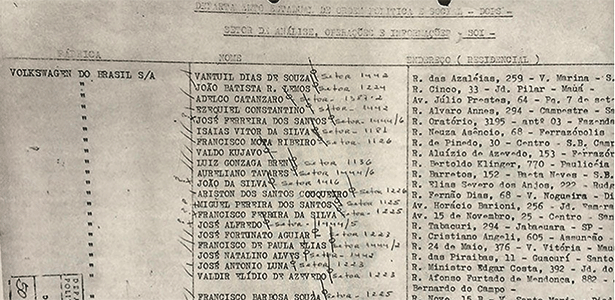 DEPARTAMENTO ESTADUAL DE ORDEM POLITICA E SOCIAL - DOPS -
SETOR DA ANÁLISE, OPERAÇÕES E INFORMAÇÕES - SOI -
FÁBRICA NOME ENDEREÇO (RESIDENCIAL)
VOLKSWAGEN DO BRASIL S/A VANTUIL DIAS DE SOUZA Setor 1442 R. das Azaléias, 259 - V. Marina - S.
" JOÃO BATISTA R. LEMOS Setor 1224 R. Cinco, 33 - Jd. Pilar - Mauá -
" ADELCO CATANZARO Setor Av. Júlio Prestes, 64 - Pq. 7 de set
" EZEQUIEL CONSTANTINO Setor 1442 R. Alvaro Annes, 294 - Campestre - Sa
" JOSÉ FERREIRA DOS SANTOS Setor 1444/6 R. Oratório, 3195 - antº 03 - Fazenda
" ISAIAS VITOR DA SILVA Setor 1181 R. Neuza Asêncio, 68 - Ferrazópolis
" FRANCISCO MOTA RIBEIRO Setor 1126 R. de Pinedo, 30 - Centro - S.B. Camp
" VALDO KUJAVO R. Aluízio de Azevedo, 153 - Ferrazó
" LUIZ GONZAGA BREN Setor 1136 R. Bertoldo Klinger, 770 - Paulicéia
" AURELIANO TAVARES Setor 1444/6 R. Barretos, 152 - Baeta Neves - S.B.
" JOÃO DA SILVA Setor 1416 R. Elias Severo dos Anjos, 222 - Rudg
" ARISTON DOS SANTOS COQUEIRO Setor 1226 R. Fernão Dias, 68 - V. Nogueira - Di
" MIGUEL PEREIRA DOS SANTOS Setor 1125 R. Horácio Barioni, 256 - Jd.
" FRANCISCO FERREIRA DA SILVA Setor 1225 Av. 15 de Novembro, 25 - Centro - San
" JOSÉ ALFREDO Setor 1444/5 R. Tabacuri, 294 - Jabaquara - SP -
" JOSÉ FORTUNATO AGUIAR Setor 1223 R. Cristiano Angeli, 605 - Assunção
" FRANCISCO DE PAULA ELIAS Setor 1444/2 R. 24 de Maio, 37 - V. Vitória - Mau
" JOSÉ NATALINO ALVES Setor 1442 R. das Piraibas, 11 - Guacuri - Santo
" JOSÉ ANTONIO LUNA Setor 1223 R. Ministro Edgar Costa, 392 - Jd. do
" VALDIR ELÍDIO DE AZEVEDO Setor 1223 R. Afonso Furtado de Mendonça, 882 -
Bernardo do Campo -
" FRANCISCO BARBOSA SOUZA Setor 1225